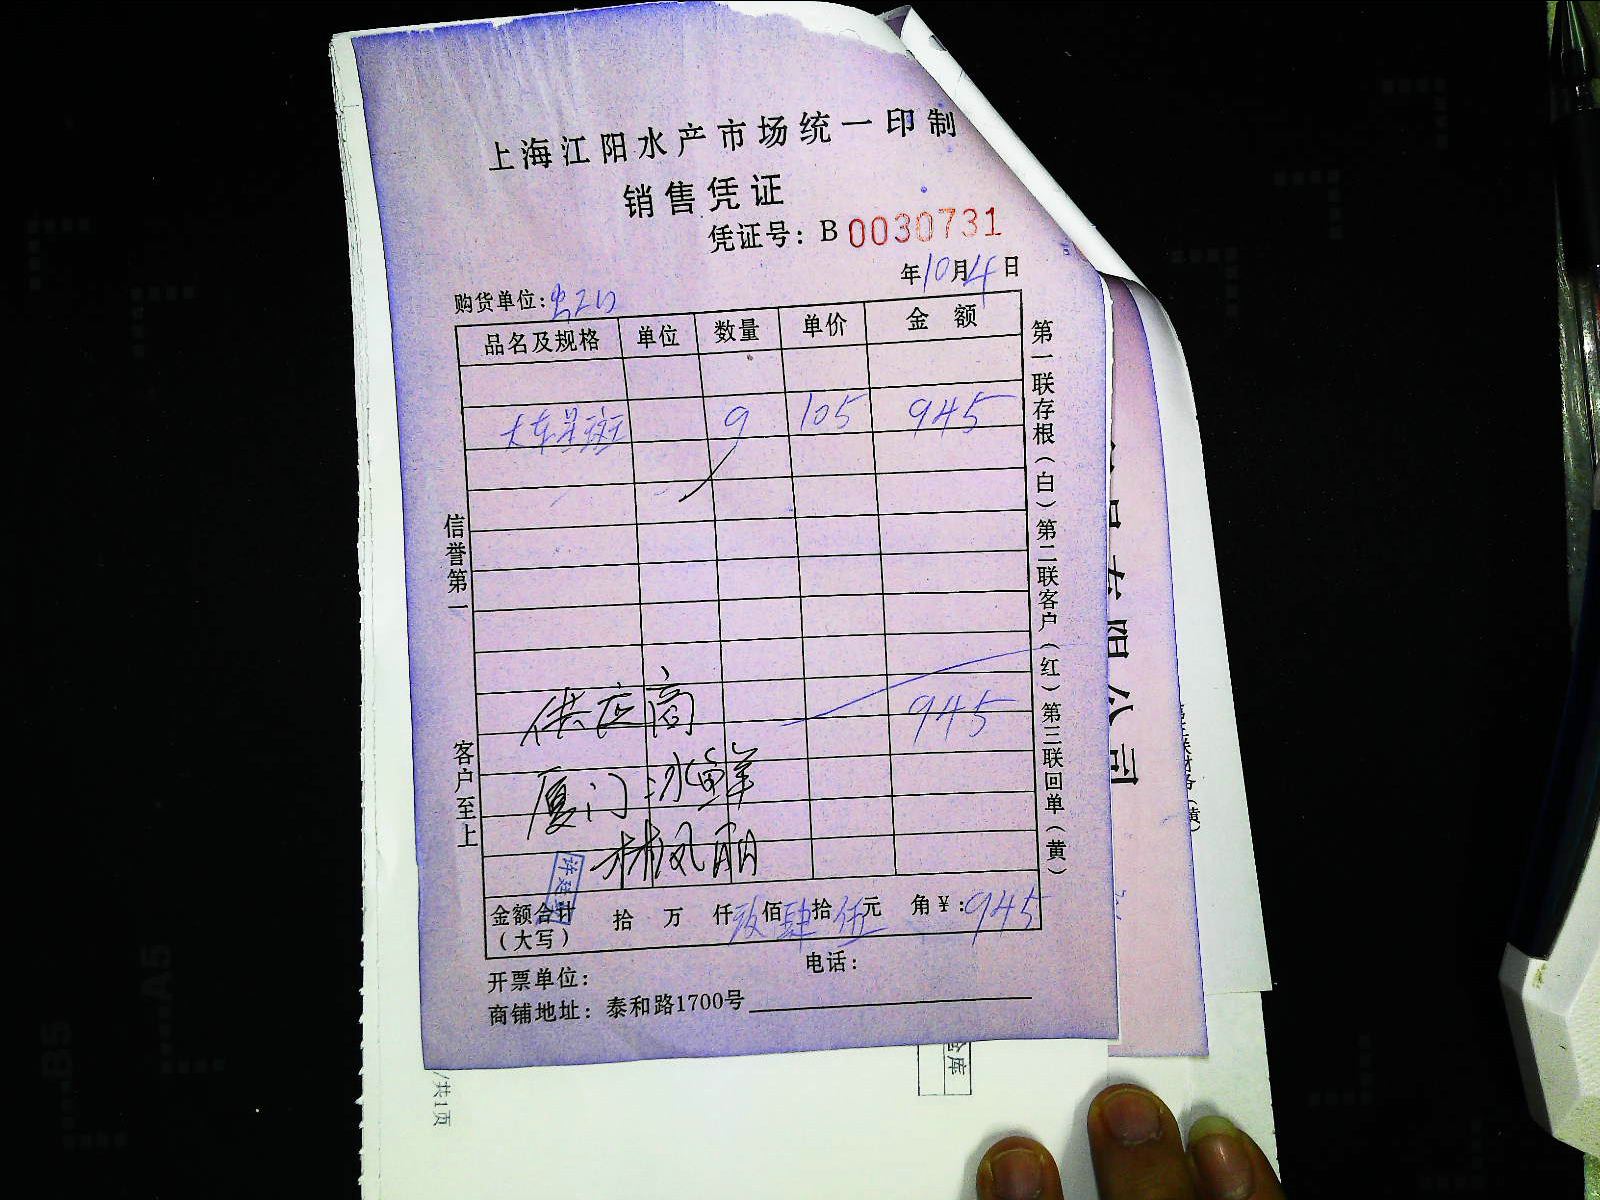 上海江阳水产市场统一印制
销售凭证
凭证号：B 0030731
年10月4日
购货单位：
品名及规格 单位 数量 单价 金额
大东星斑 9 105 945
945
供应商
厦门冰鲜
林凤丽
金额合计（大写） 拾 万 仟玖佰肆拾伍元 角￥：945
开票单位： 电话：
商铺地址：泰和路1700号
信誉第一
客户至上
第一联存根（白）第二联客户（红）第三联回单（黄）
/共1页